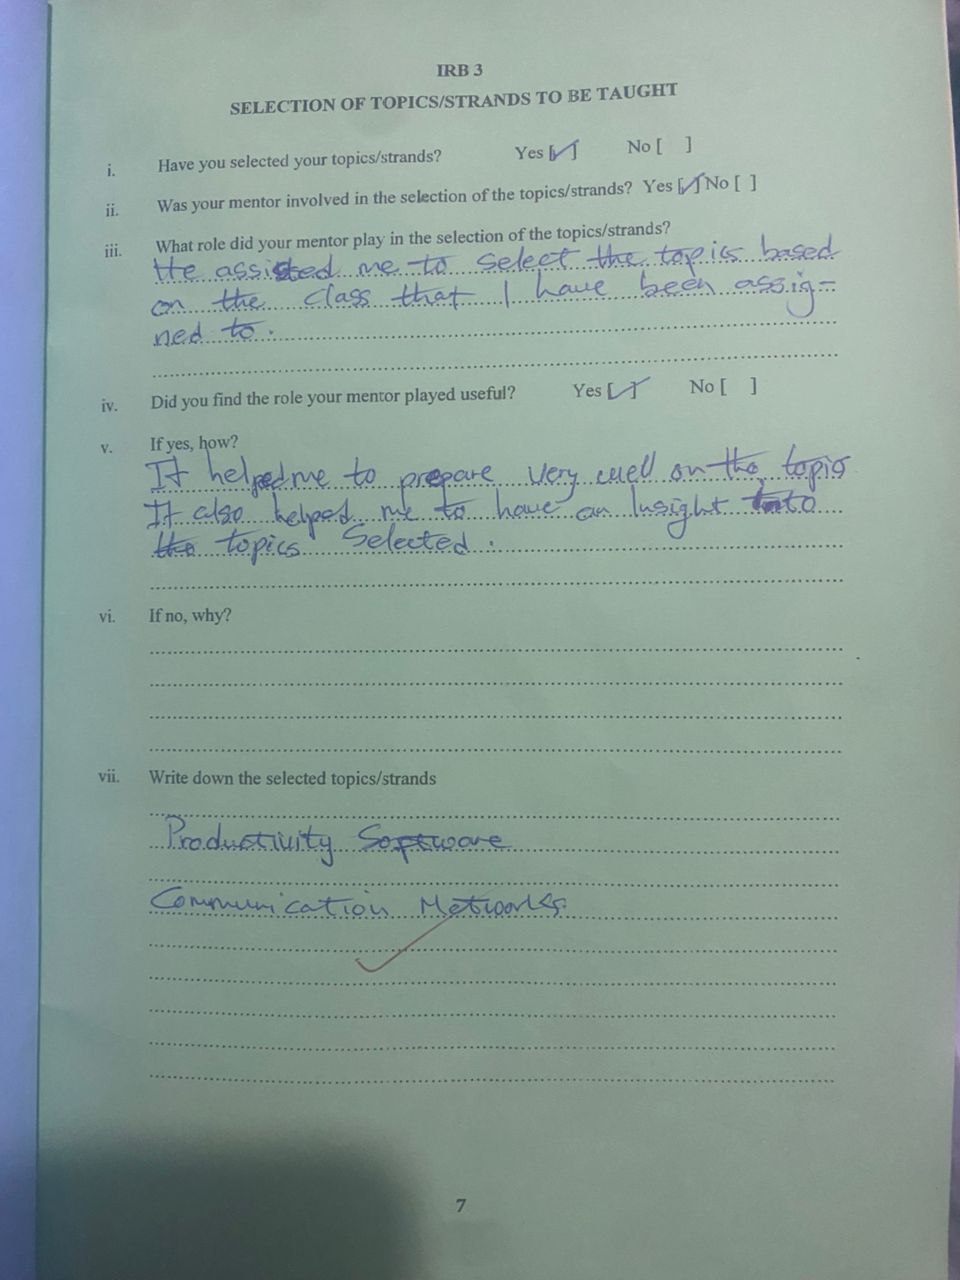 IRB 3
SELECTION OF TOPICS/STRANDS TO BE TAUGHT
i. Have you selected your topics/strands? Yes [✓] No [ ]
ii. Was your mentor involved in the selection of the topics/strands? Yes [✓] No [ ]
iii. What role did your mentor play in the selection of the topics/strands?
He assisted me to select the topics based
on the class that I have been assig-
ned to.
iv. Did you find the role your mentor played useful? Yes [✓] No [ ]
v. If yes, how?
It helped me to prepare very well on the topic
It also helped me to have an Insight into
the topics Selected.
vi. If no, why?
vii. Write down the selected topics/strands
Productivity Software
Communication Networks.
7